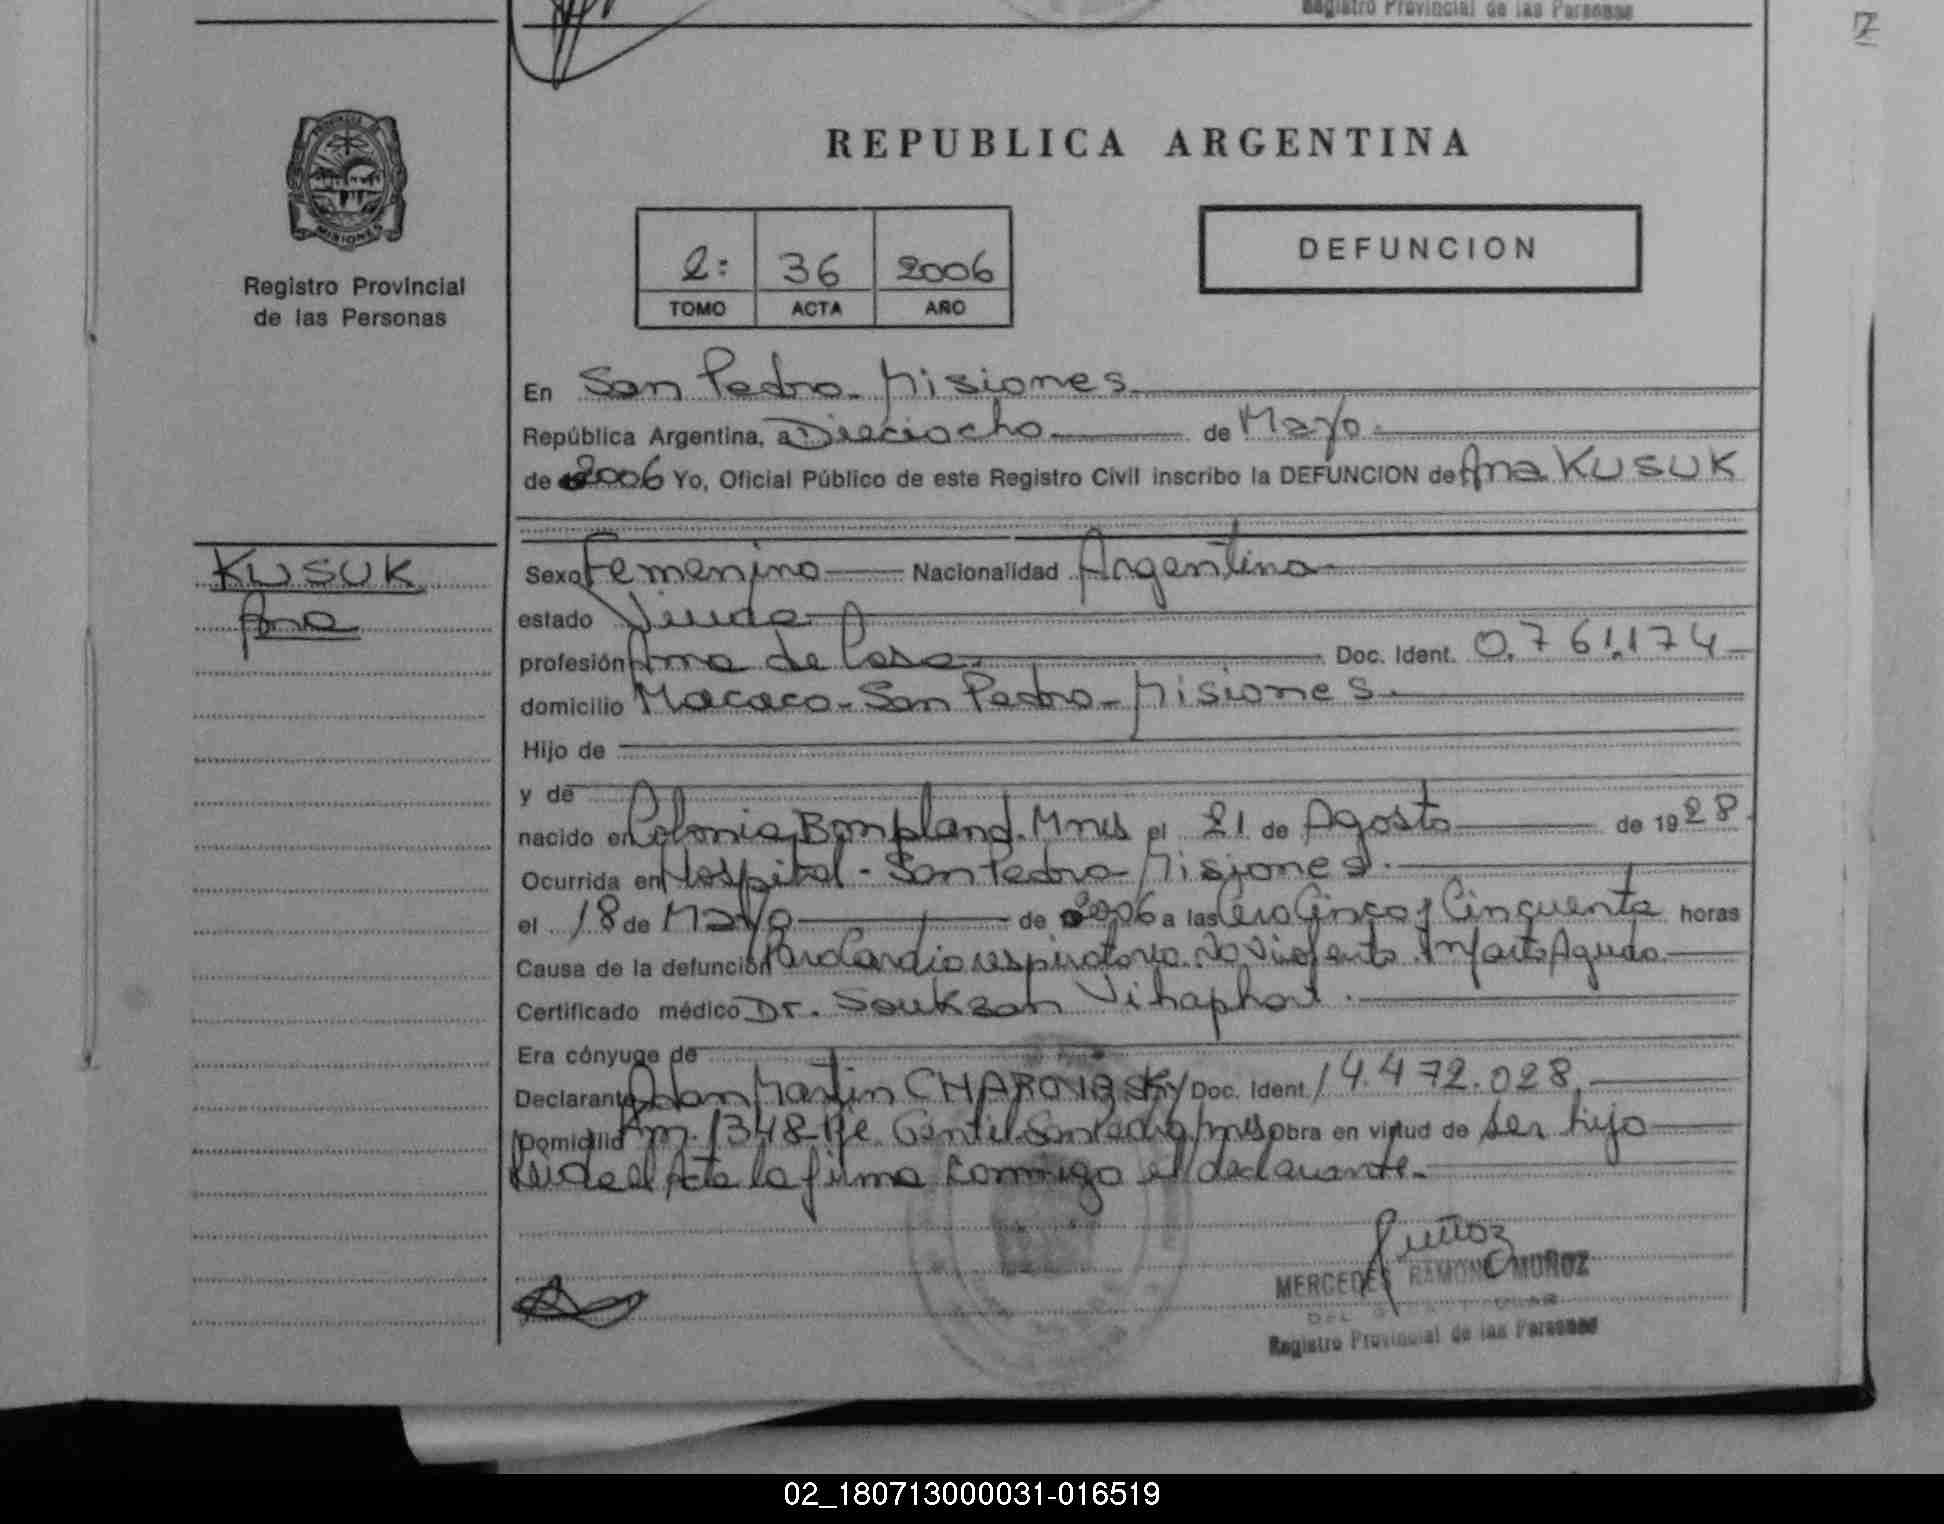 Registro Provincial de las Personas
7
PROVINCIA D
MISIONES
Registro Provincial
de las Personas
REPUBLICA ARGENTINA
2: 36 2006
TOMO ACTA AÑO
DEFUNCION
En San Pedro - Misiones
República Argentina, a Dieciocho de Mayo
de 2006 Yo, Oficial Público de este Registro Civil inscribo la DEFUNCION de Ana KUSUK
KUSUK
Ana
Sexo Femenino Nacionalidad Argentina
estado Viuda
profesión Ama de Casa Doc. Ident. 0.761.174
domicilio Macaco - San Pedro - Misiones
Hijo de
y de
nacido en Colonia Bompland. Mnes el 21 de Agosto de 1928
Ocurrida en Hospital - San Pedro - Misiones
el 18 de Mayo de 2006 a las Cero Cinco y Cincuenta horas
Causa de la defunción Paro Cardio respiratorio. No Violento. Infarto Agudo
Certificado médico Dr. Souksan Vihaphat
Era cónyuge de
Declarante Adan Martin CHAROVASKY Doc. Ident. 14.472.028
Domicilio Km. 1348 Pje Gentil San Pedro Mnes Obra en virtud de ser hijo
Leida el Acta la firma conmigo el declarante.
Muñoz
MERCEDES RAMONA MUÑOZ
Registro Provincial de las Personas
02_180713000031-016519